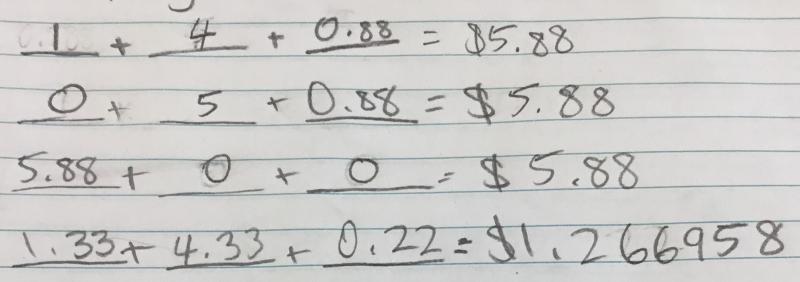 1 + 4 + 0.88 = $5.88
0 + 5 + 0.88 = $5.88
5.88 + 0 + 0 = $5.88
1.33 + 4.33 + 0.22 = $1.266958